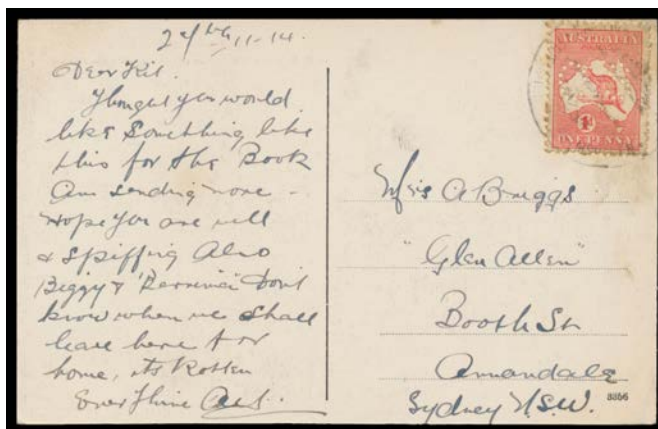 Dear Kit.
Thought you would
like something like
this for the Book
Am sending more -
Hope you are well
& spiffing Also
Biggy & " Don't
know when we shall
leave here for
home, its Rotten
Ever Thine
AUSTRALIA
1D
ONE PENNY
Mrs A Briggs
"Glen Allen"
Booth St
Annandale
Sydney N.S.W.
8356